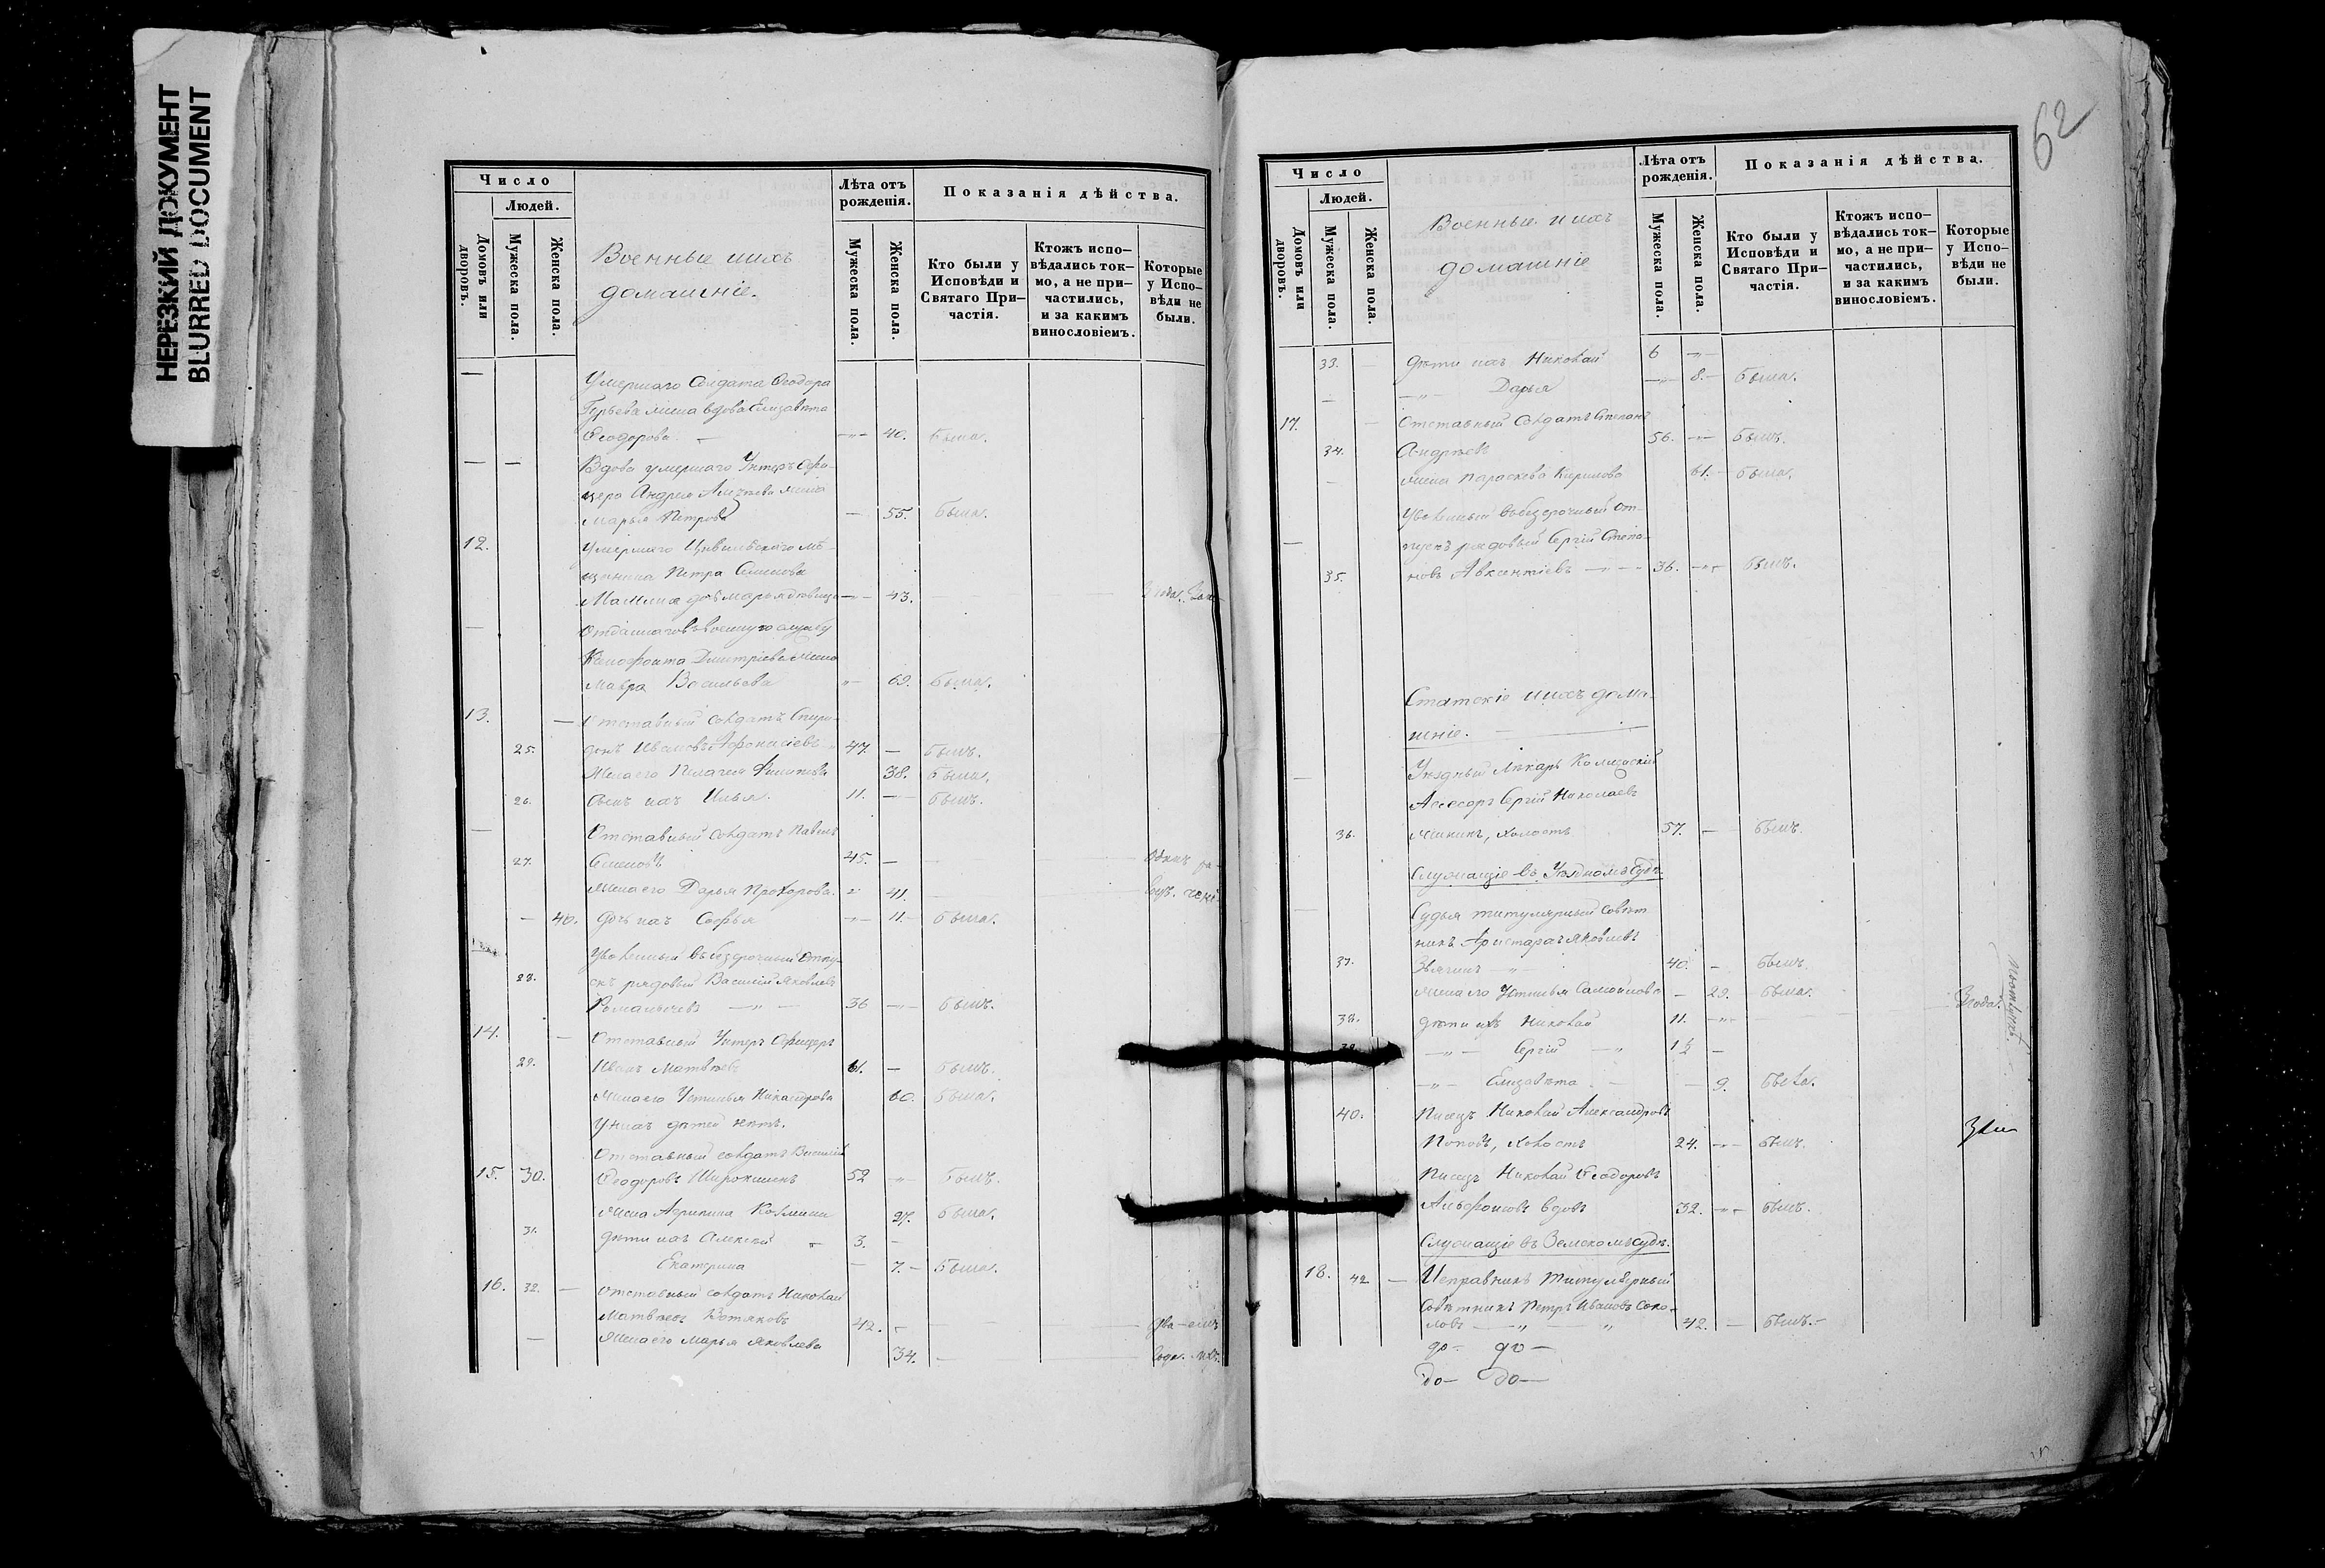 НЕРЕЗКИЙ ДОКУМЕНТ
BLURRED DOCUMENT
Число
Людей.
Домовъ или дворовъ.
Мужеска пола.
Женска пола.
Военные и ихъ
домашніе.
Лѣта отъ рожденія.
Мужеска пола.
Женска пола.
Показанія дѣйства.
Кто были у Исповѣди и Святаго При–частія.
Ктожъ испо–вѣдались ток–мо, а не при–частились, и за какимъ винословіемъ.
Которые у Испо–вѣди не были.
Умершаго Солдата Ѳеодора
Гурьева жена вдова Елизавета
Ѳеодорова — 40. Была.
Вдова умершаго Унтеръ Офи–
цера Андрея жена
Марья Петрова 55. Была.
12. Умершаго Цивильскаго мѣ–
щанина Петра Семенова
дѣвица 43.
Отданнаго въ военную службу
Ксенофонта Дмитріева жена
Мавра Васильева 69. Была.
13. Отставный солдатъ Спири–
25. донъ Ивановъ Афонасіевъ 47. — Былъ.
Жена его Пелагея Филипова 38. Была.
26. Сынъ ихъ Илья. 11. — Былъ.
Отставный солдатъ Павелъ
27. Семеновъ 45. —
Жена его Дарья Прохорова. 41.
40. Дочь ихъ Софья 11. Была.
Уволенный въ безсрочный отпу–
28. скъ рядовый Василій Яковлевъ
Романычевъ 36 Былъ.
14. Отставный Унтеръ Офицеръ
29. Иванъ Матвѣевъ 61. — Былъ.
Жена его Устинья Никандрова 60. Была.
У нихъ дѣтей нѣтъ.
Отставный солдатъ Василій
15. 30. Ѳеодоровъ Широкшинъ 52 Былъ.
Жена Агрипина Козмина 27. Была.
31. Дѣти ихъ Алексѣй 3. —
Екатерина 7. — Была.
16. 32. — Отставный солдатъ Николай
Матвѣевъ Вотяковъ 42.
Жена его Марья Яковлева 34.
62
Число
Людей.
Домовъ или дворовъ.
Мужеска пола.
Женска пола.
Военные и ихъ
домашніе
Лѣта отъ рожденія.
Мужеска пола.
Женска пола.
Показанія дѣйства.
Кто были у Исповѣди и Святаго При–частія.
Ктожъ испо–вѣдались ток–мо, а не при–частились, и за какимъ винословіемъ.
Которые у Испо–вѣди не были.
33. Дѣти ихъ Николай 6
Дарья 8. — Была.
17. Отставный Солдатъ Степанъ
34. Андреевъ 56. Былъ.
Жена Параскева Кирилова 61. Была.
Уволенный въ безсрочный от–
пускъ рядовый Сергій Степа–
35. новъ Авксентіевъ 36. Былъ.
Статскіе и ихъ дома–
шніе.
Уѣздный Лѣкарь Колежскій
Асесоръ Сергій Николаевъ
36. холостъ 57. — Былъ.
Служащіе въ Уѣздномъ Судѣ.
Судья титулярный совѣт–
никъ Аристархъ Яковлевъ
37. Звягинъ 40. — Былъ.
Жена его Устинья Самойлова — 29. Была.
38. Дѣти ихъ Николай 11. 3 года.
39. Сергій 1½ —
Елизавета 9. Была.
40. Писецъ Николай Александровъ
Поповъ, холостъ 24. Былъ.
Писецъ Николай Ѳеодоровъ
Альфонсовъ вдовъ 32. Былъ.
Служащіе въ Земскомъ судѣ.
18. 42 — Исправникъ Титулярный
Совѣтникъ Петръ Ивановъ Соко–
ловъ 42. — Былъ. —
до — до —
до — до —